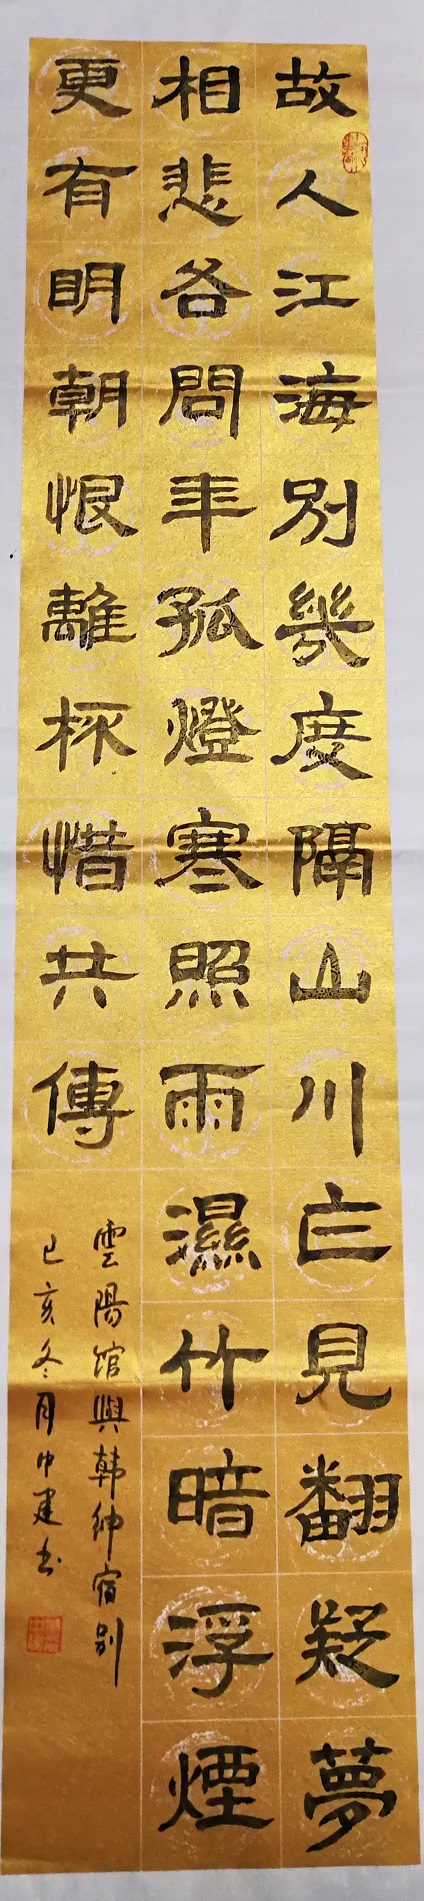 故人江海別幾度隔山川亡見翻疑夢
相悲各問年孤燈寒照雨濕竹暗浮煙
更有明朝恨離杯惜共傳
雲陽馆與韩紳宿别
己亥冬月中建书